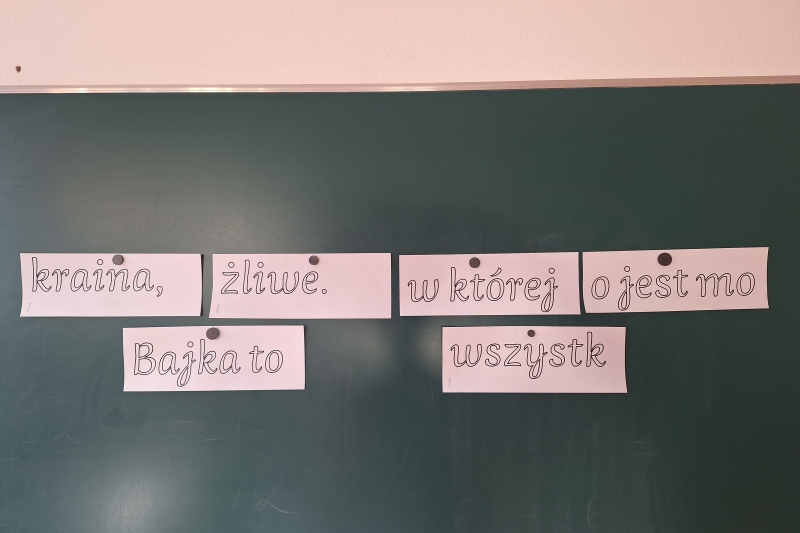 kraina, żliwe. w której o jest mo
Bajka to wszystk